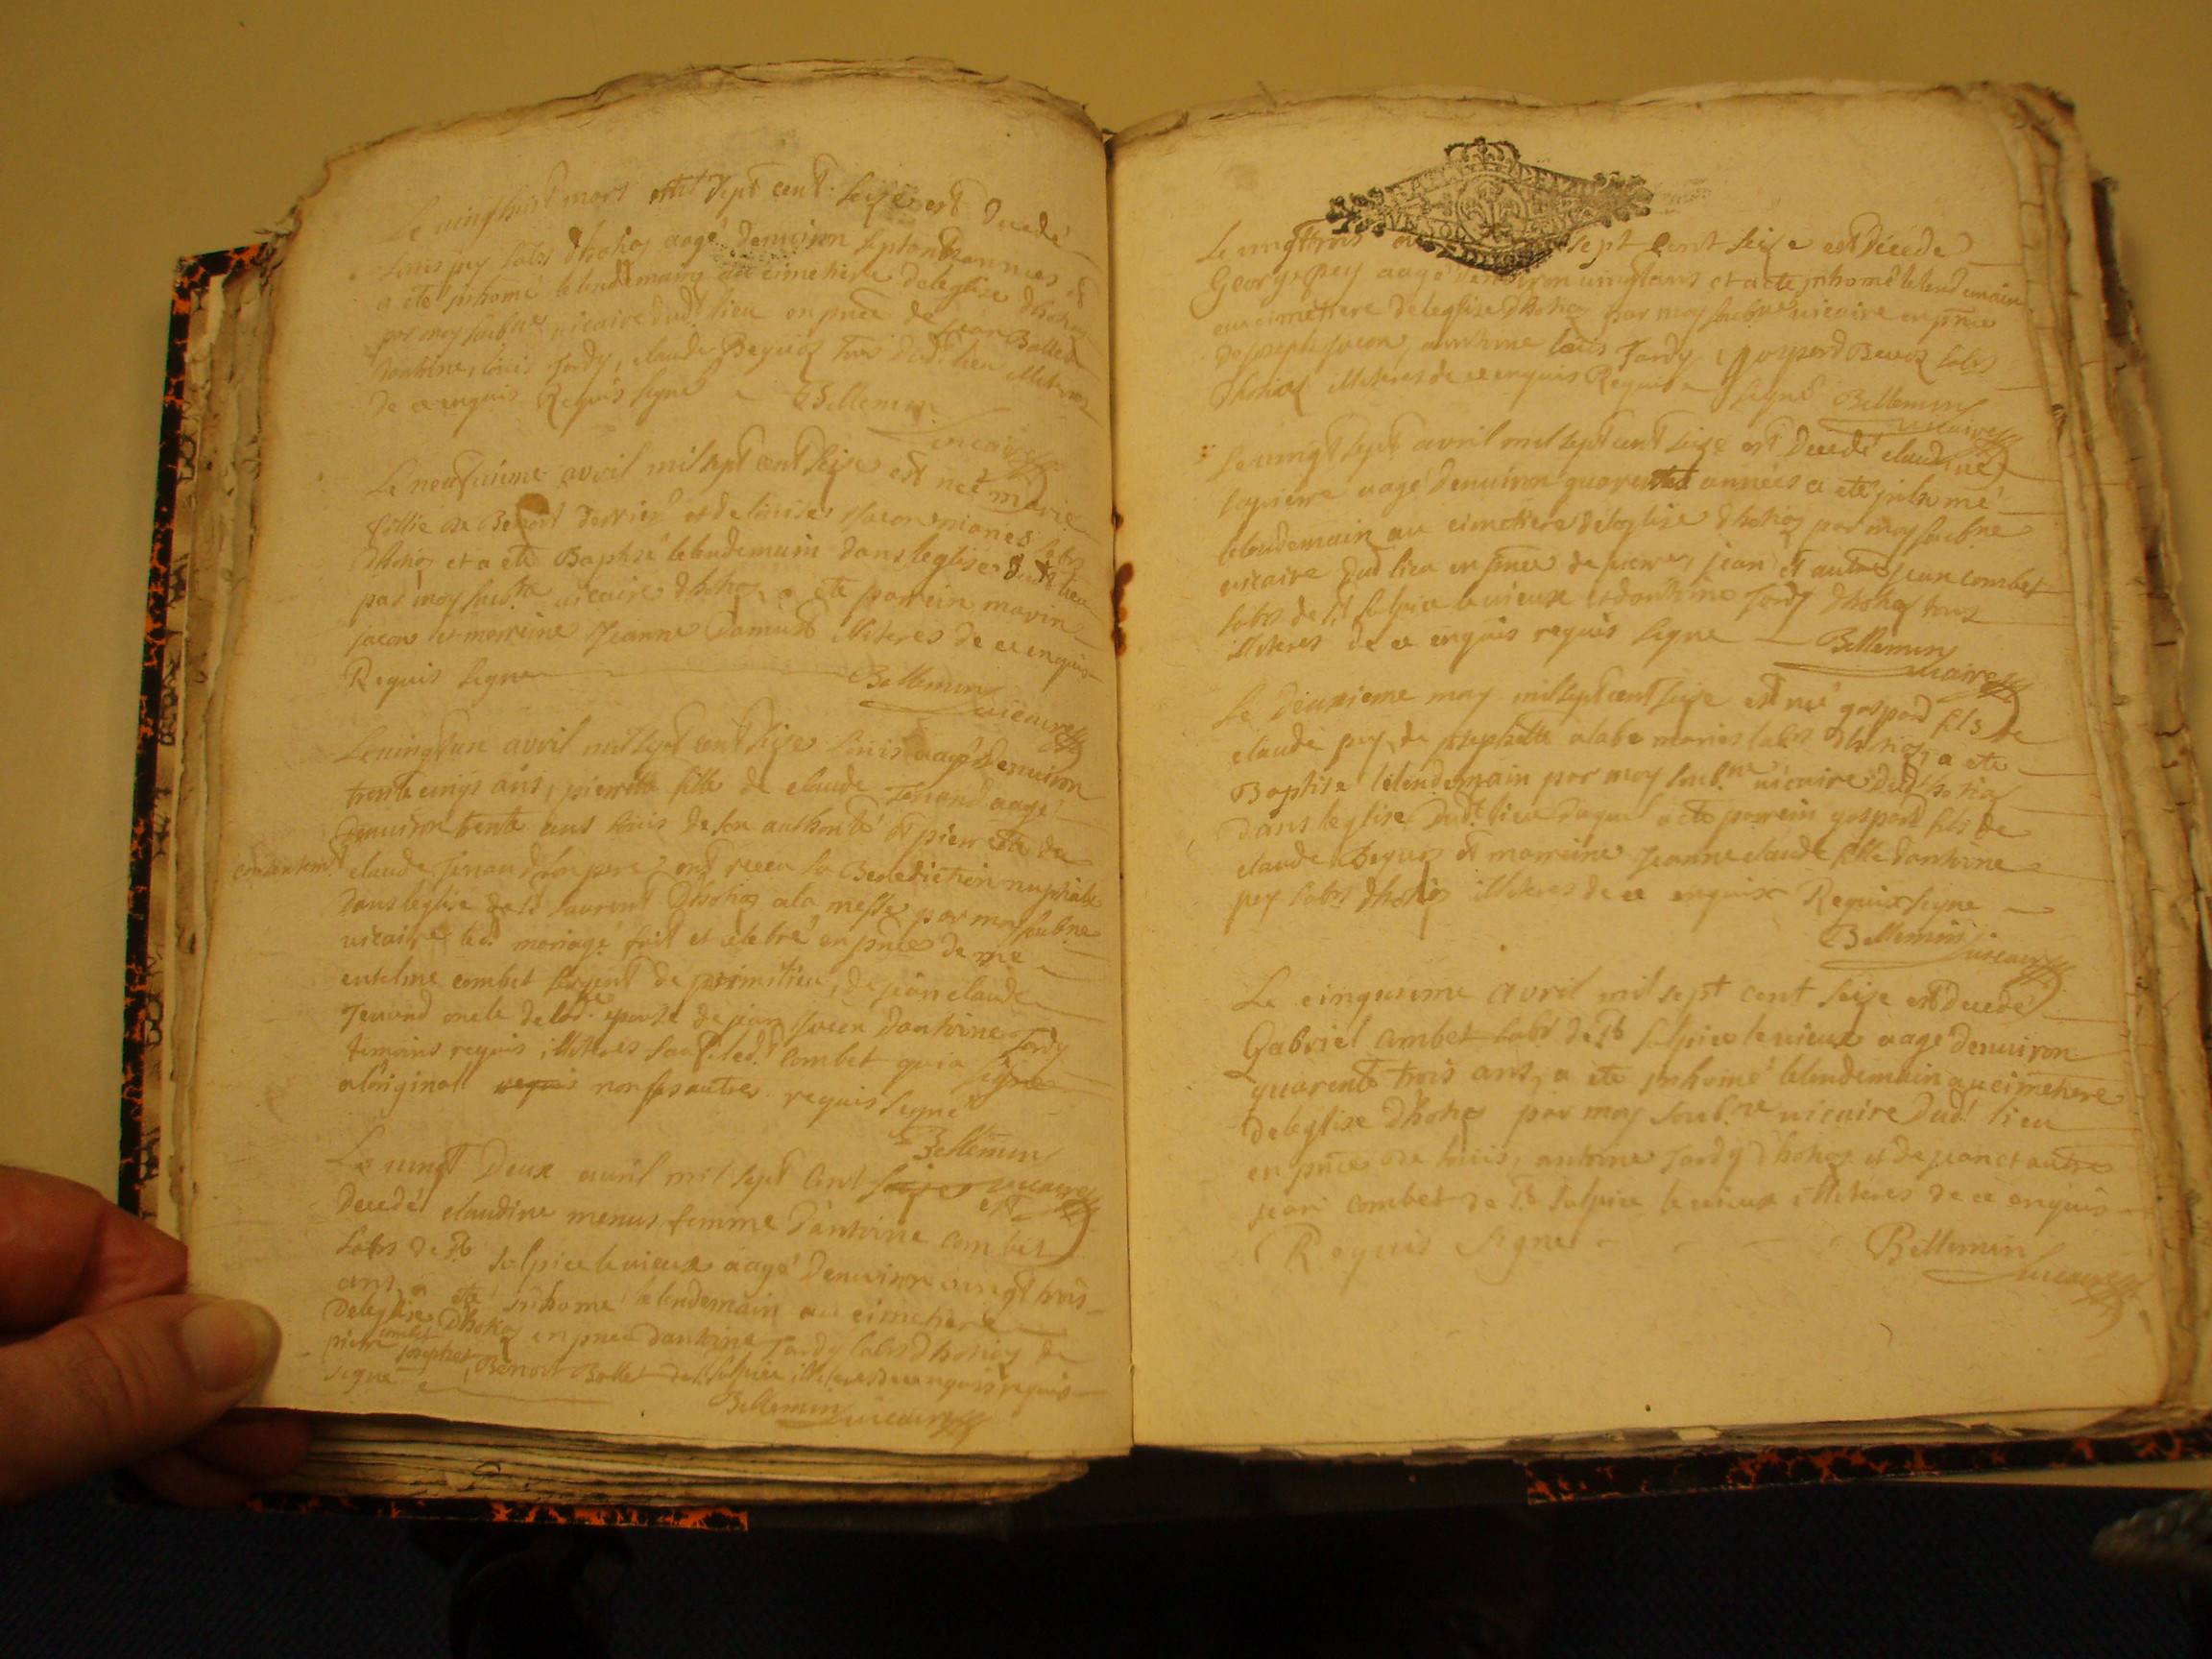 Le vingthuit mars mil sept cent seize est decedé
Louis pey labr dhostiaz aagé denviron septante annees et
a ete jnhomé lelendemaing au cimetiere deleglise dhostiaz
par moy soubne vicaire dudt lieu en pnce de Jean Ballet
dantoine, louis Jardy, claude Beguet tous dudt lieu illiteres
de ce enquis Requis signé Bellemin
vicaire
Le neufvieme avril mil sept cent seize est neé marie
fillie de Benoit et de louise Jacon mariés labrs
dhostiaz et a ete Baptisé lelendemain dans leglise dudt lieu
par moy soubne vicaire dhostiaz, a ete parrein marin
jacon et marreine Jeanne illiteres de ce enquis
Requis signe Bellemin
vicaire
Le vingtun avril mil sept cent seize louis aagé denviron
trente cinqs ans, pierrette fille de claude Jenand aagé
denviron trente ans louis de son authorité et pierrette du
consentemt claude Jenand son pere, ont receu la Benediction nuptiale
dans leglise de st laurent dhostiaz ala messe par moy soubne
vicaire led. mariage fait et celebré en pnce de me
combet de , de jean claude
Jenand oncle de lade epouse de jean Jacon dantoine Jardy
temoins requis illiteres sauf led. combet qui a signe
aloriginal requis non les autres requis signé
Bellemin
vicaire
Le vingt Deux avril mil sept Cent seize est
Decedé claudine menus femme dantoine combet
labr de st sulpice le vieux aagé denviron vingt trois
ans, a ete jnhomé lelendemain au cimetiere
deleglise dhostiaz en pnce dantoine Jardy labr dhostiaz de
pierre combet Joseph , Benoit Ballet de st sulpice illiteres de ce enquis requis
signe
Bellemin vicaire
Le vingttrois sept Cent seize est décédé
George pey aagé denviron vingt ans et a ete jnhomé lelendemain
au cimetiere deleglise dhostiaz par moy soubne vicaire en pnce
de joseph Jacon, anthoine louis Jardy, gaspard labrs
dhostiaz illiteres de ce enquis Requis signé Bellemin
vicaire
Le vingt sept avril mil sept cent seize est Decedé claudine
lapierre aagé denviron quarente années a ete jnhomé
lelendemain au cimetiere deleglise dhostiaz par moy soubne
vicaire dud lieu en pnce de pierre, jean et autre jean combet
labrs de st sulpice le vieux et dantoine Jardy dhostiaz tous
illiteres de ce enquis requis signe Bellemin
vicaire
Le deuxieme may mil sept cent seize est né gaspard fils de
claude pey, de josephette alabe mariés labrs dhostiaz, a ete
Baptisé lelendemain par moy soubne vicaire dudt hostiaz
dans leglise dudt lieu duquel a ete parrein gaspard fils de
claude Beguet et marreine Jeanne claude fille dantoine
pey labrs dhostiaz illiteres de ce enquix Requix signe
Bellemin vicaire
Le cinquieme Avril mil sept cent seize est decedé
Gabriel Combet labr de st sulpice le vieux aagé denviron
quarente trois ans, a ete jnhomé lelendemain au cimetiere
deleglise dhostiaz par moy soub.ne vicaire Dudt lieu
en pnce de louis, antoine Jardy dhostiaz et de jean et autre
jean combet de st sulpice le vieux illiteres de ce enquis
Requis signe Bellemin
vicaire